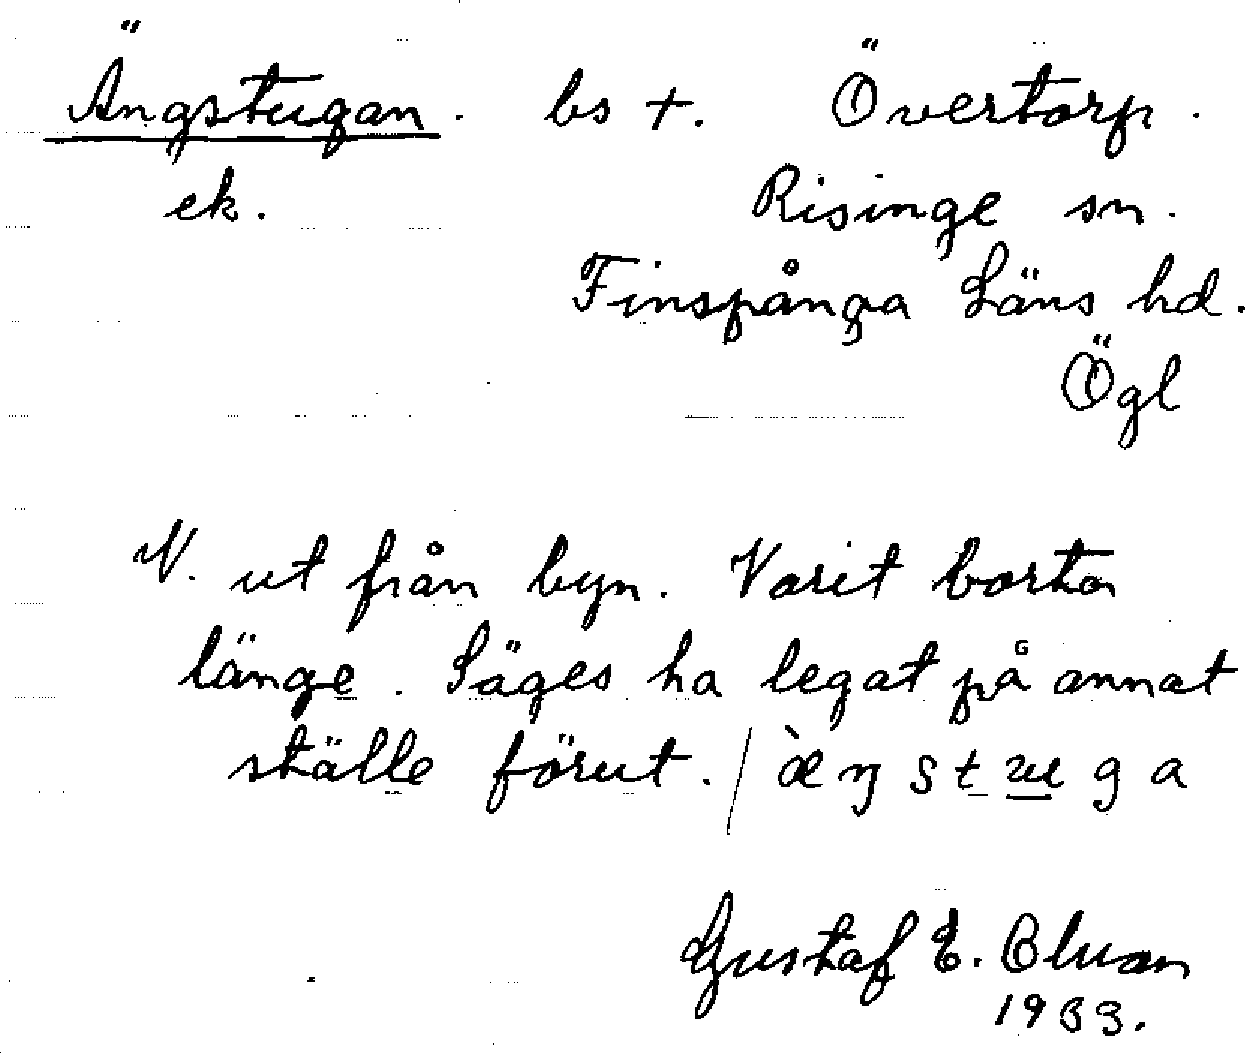 Ängstugan. bs +. Övertorp.
ek. Risinge sn.
Finspånga Läns hd.
Ögl
N. ut från byn. Varit borta
länge. Säges ha legat på annat
ställe förut. / æ̀ŋstuga
Gustaf E.
1933.